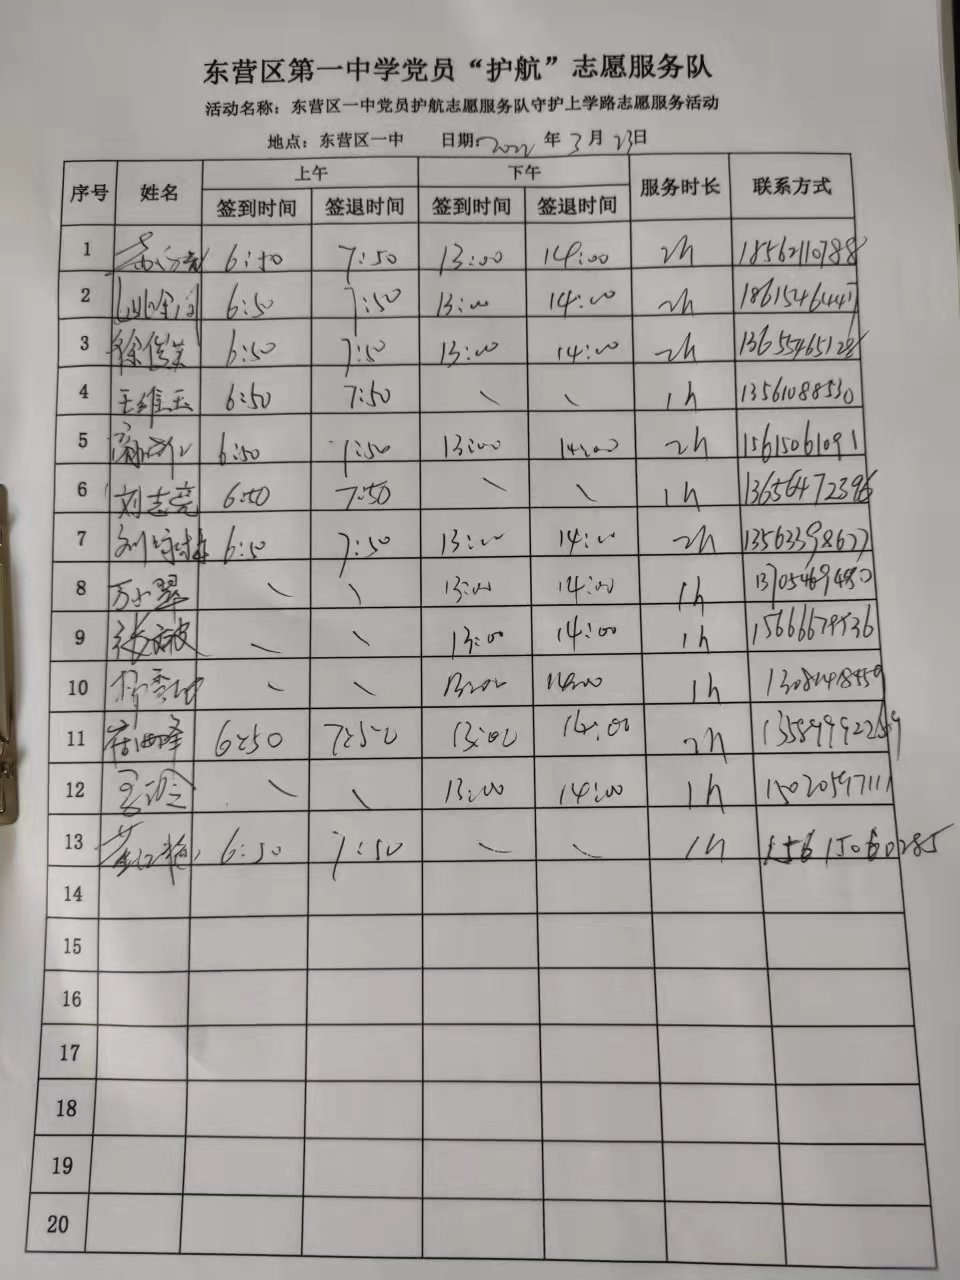 东营区第一中学党员“护航”志愿服务队
活动名称：东营区一中党员护航志愿服务队守护上学路志愿服务活动
地点：东营区一中 日期：2022年3月23日
序号 姓名 上午 下午 服务时长 联系方式
签到时间 签退时间 签到时间 签退时间
1 6:50 7:50 13:00 14:00 2h 18562110788
2 6:50 7:50 13:00 14:00 2h
3 徐俊美 6:50 7:50 13:00 14:00 2h
4 王维玉 6:50 7:50 \ \ 1h 13561088530
5 6:50 7:50 13:00 14:00 2h 15615061091
6 刘志亮 6:50 7:50 \ \ 1h 13656472396
7 6:50 7:50 13:00 14:00 2h 13562398677
8 万小翠 \ \ 13:00 14:00 1h 13705469480
9 \ \ 13:00 14:00 1h 15666679536
10 \ \ 13:00 14:00 1h
11 6:50 7:50 13:00 14:00 2h
12 \ \ 13:00 14:00 1h 15020597111
13 6:50 7:50 \ \ 1h 15615060285
14
15
16
17
18
19
20